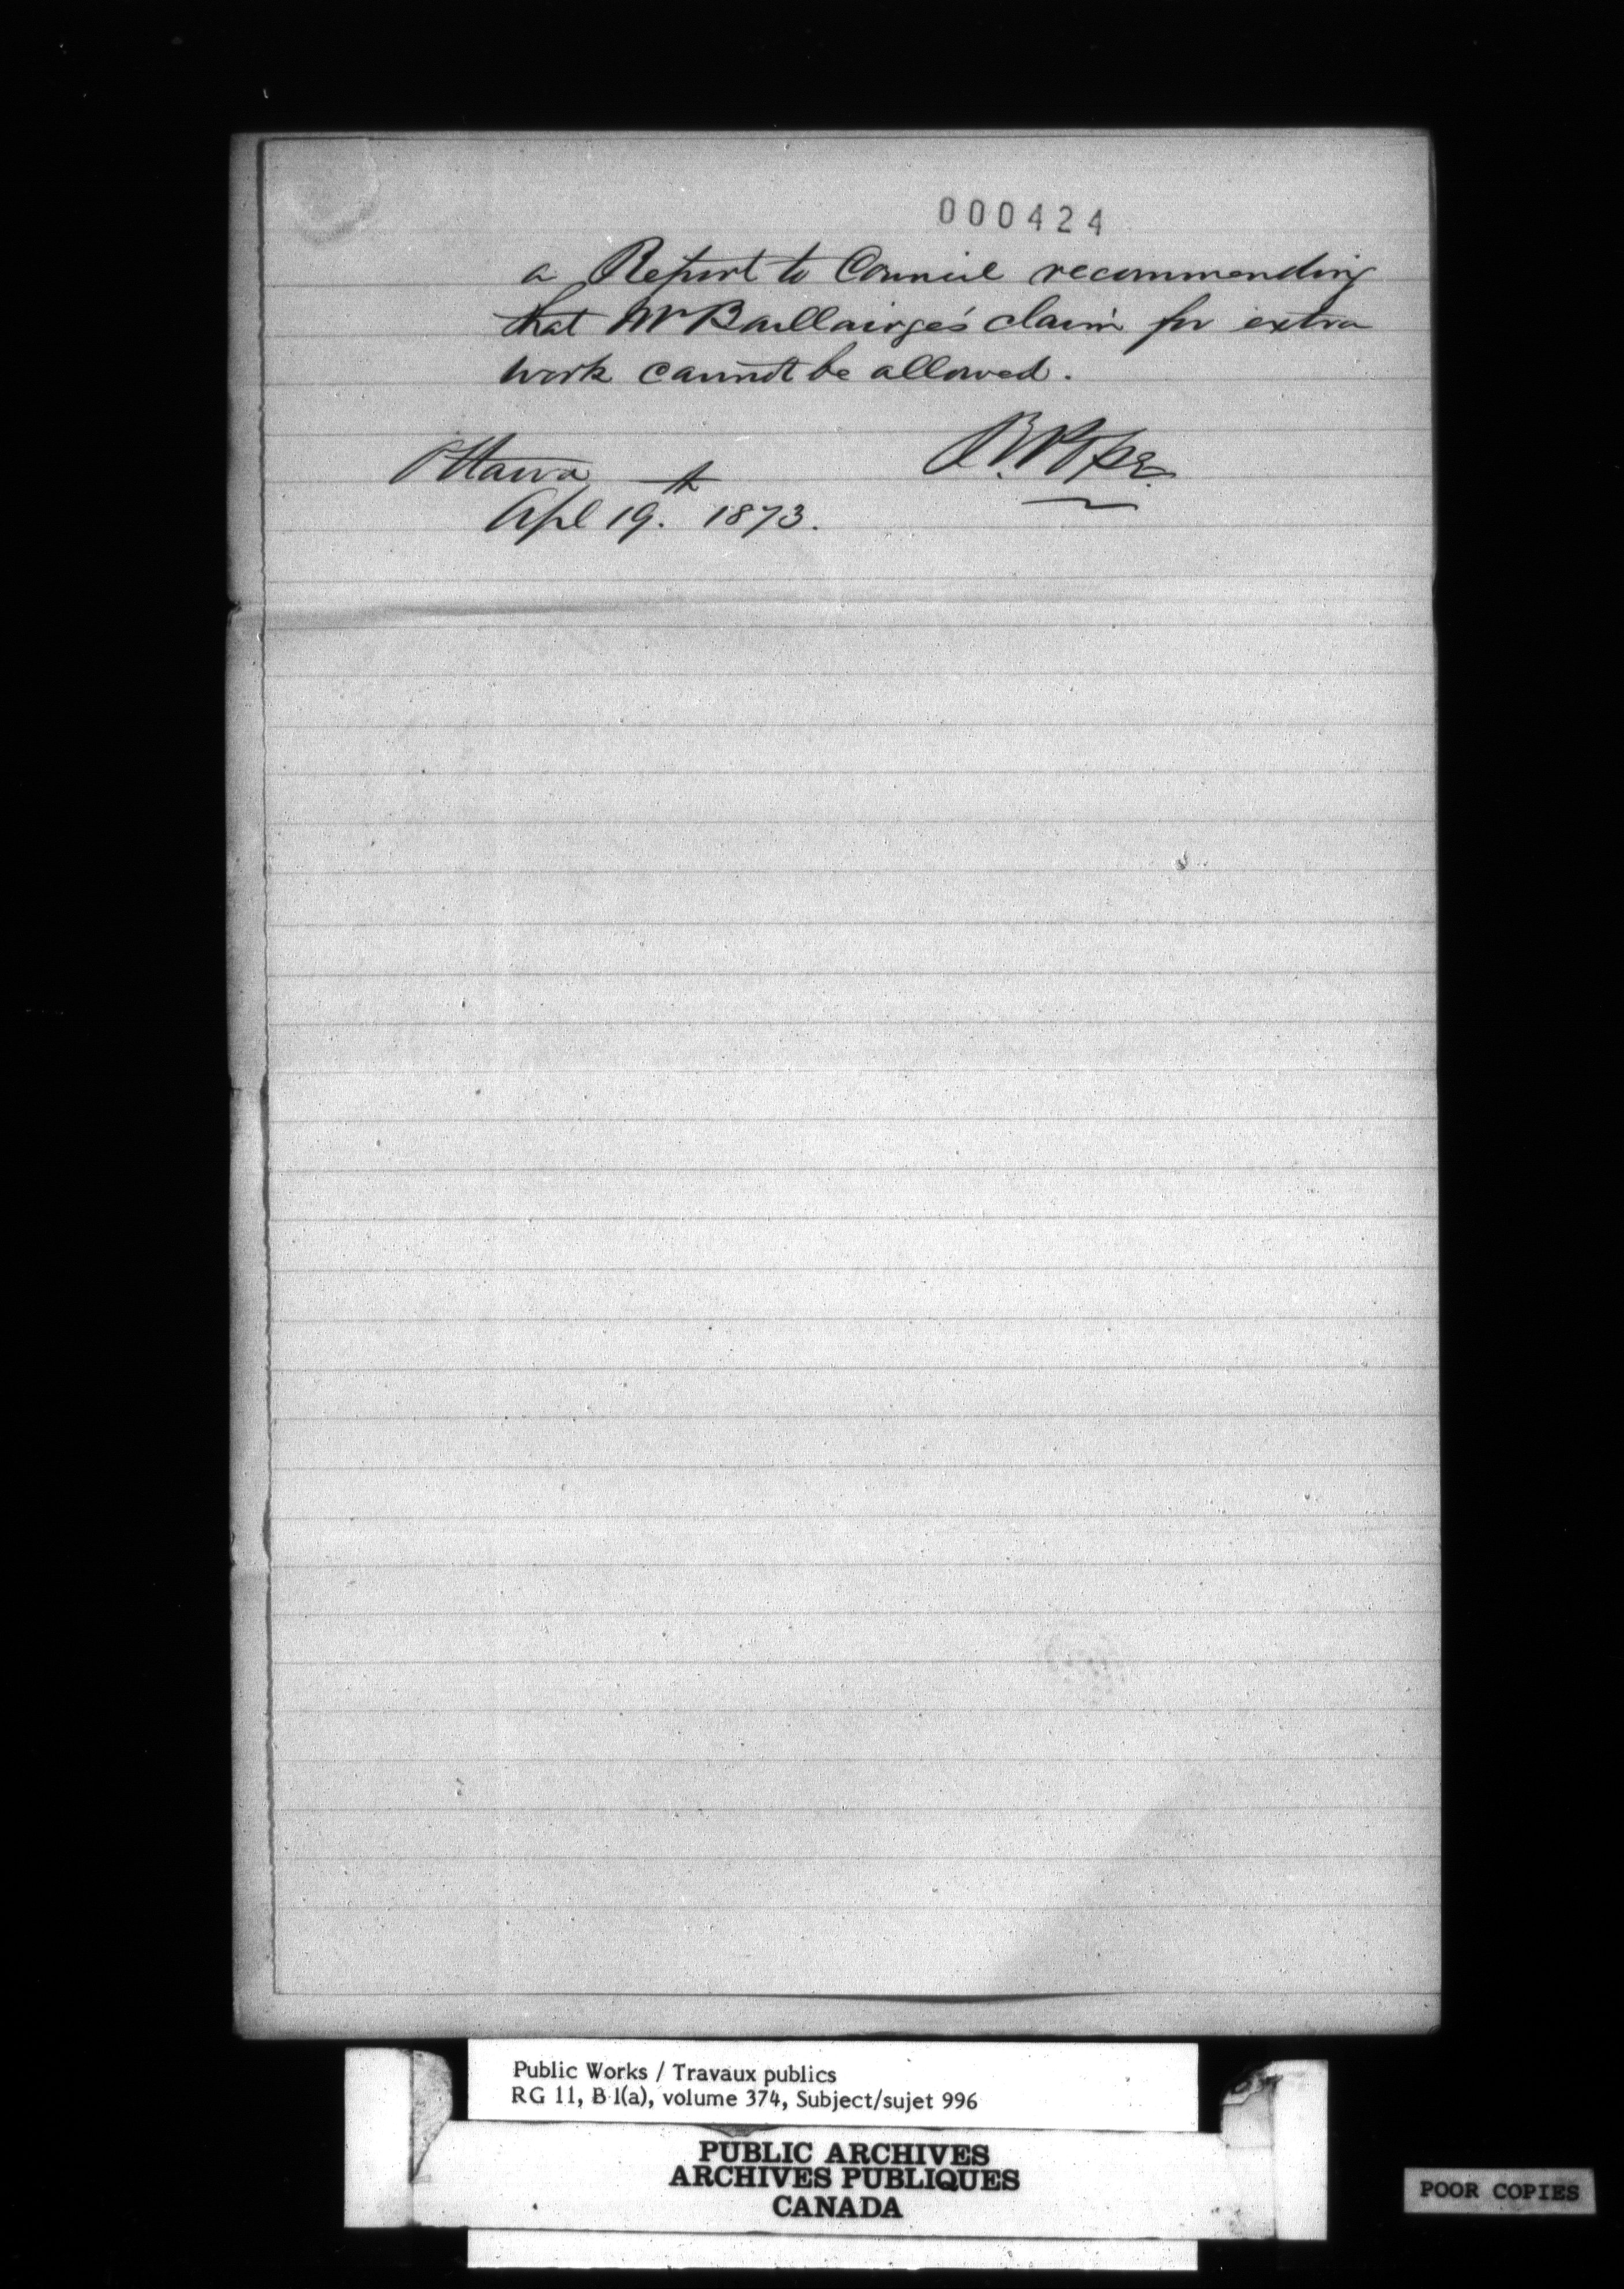 000424
a Report to Council recommending
that Mr Baillairge's claim for extra
work cannot be allowed.
Ottawa
Apl 19th 1873.
Public Works / Travaux publics
RG 11, B 1(a), volume 374, Subject/sujet 996
PUBLIC ARCHIVES
ARCHIVES PUBLIQUES
CANADA
POOR COPIES